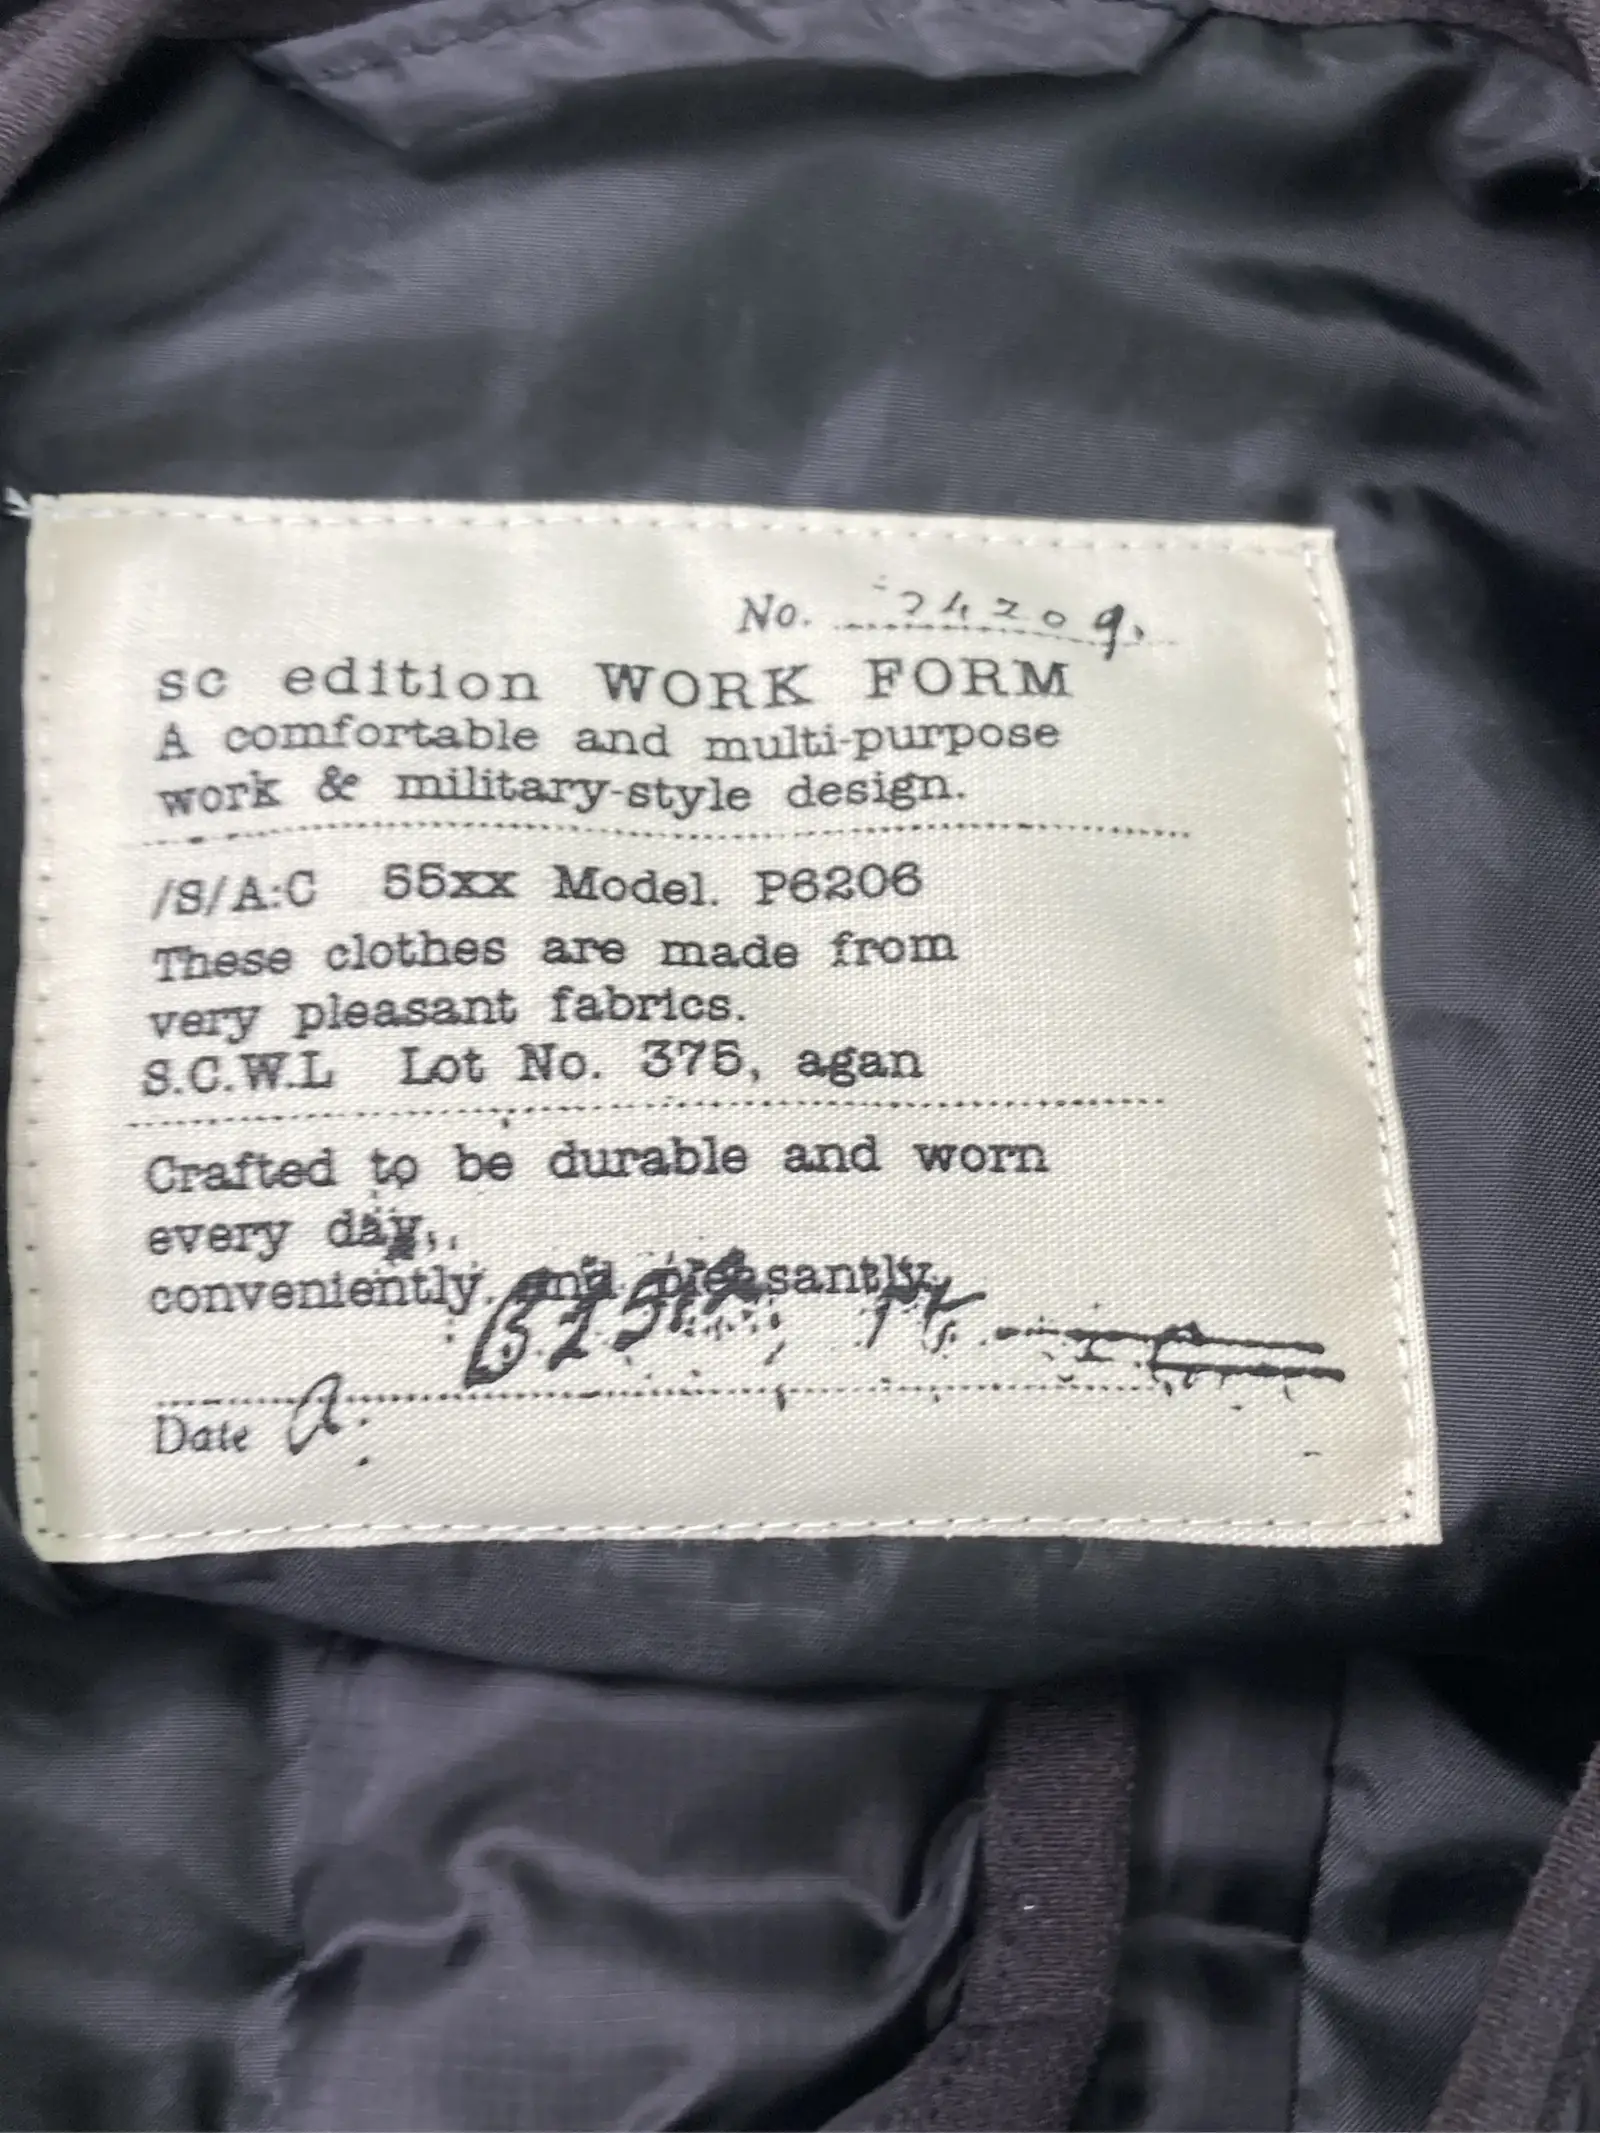 No. 24209.
sc edition WORK FORM
A comfortable and multi-purpose
work & military-style design.
/S/A:C 55xx Model. P6206
These clothes are made from
very pleasant fabrics.
S.C.W.L Lot No. 375, agan
Crafted to be durable and worn
every day,
conveniently, and pleasantly,
Date a.